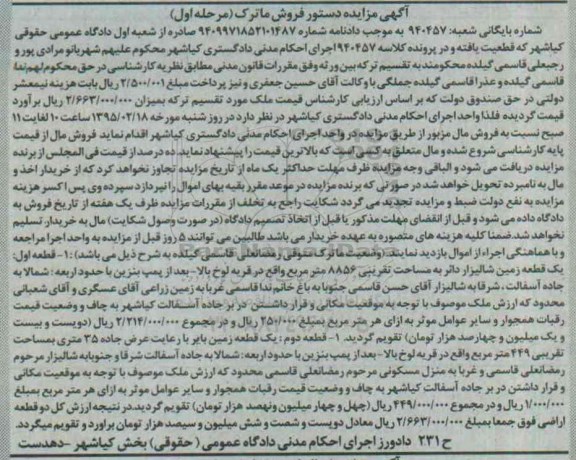 آگهی مزایده دستور فروش ماترک (مرحله اول)
شماره بایگانی شعبه: ۹۴۰۴۵۷ به موجب دادنامه شماره ۹۴۰۹۹۷۱۸۵۲۱۰۱۴۸۷ صادره از شعبه اول دادگاه عمومی حقوقی
کیاشهر که قطعیت یافته و در پرونده کلاسه ۹۴۰۴۵۷ اجرای احکام مدنی دادگستری کیاشهر محکوم علیهم شهربانو مرادی پور و
رجبعلی قاسمی گیلده محکومند به تقسیم ترکه بین ورثه وفق مقررات قانون مدنی مطابق نظریه کارشناسی در حق محکوم لهم نما
قاسمی گیلده و عذرا قاسمی گیلده جملگی با وکالت آقای حسین جعفری و نیز پرداخت مبلغ ۲/۵۰۰/۰۰۱ ریال بابت هزینه نیمعشر
دولتی در حق صندوق دولت که بر اساس ارزیابی کارشناس قیمت ملک مورد تقسیم ترکه بمیزان ۲/۶۶۳/۰۰۰/۰۰۰ ریال برآورد
قیمت گردیده فلذا واحد اجرای احکام مدنی دادگستری کیاشهر در نظر دارد در روز شنبه مورخه ۱۳۹۵/۰۲/۱۸ ساعت ۱۰ لغایت ۱۱
صبح نسبت به فروش مال مزبور از طریق مزایده در واحد اجرای احکام مدنی دادگستری کیاشهر اقدام نماید فروش مال از قیمت
پایه کارشناسی شروع شده و مال متعلق به کسی است که بالاترین قیمت را پیشنهاد نماید. ده درصد از قیمت فی المجلس از برنده
مزایده دریافت می شود و الباقی وجه مزایده ظرف مهلت حداکثر یک ماه از تاریخ مزایده تجاوز نخواهد کرد که از خریدار اخذ و
مال به نامبرده تحویل خواهد شد، در صورتی که برنده مزایده در موعد مقرر بقیه بهای اموال را نپردازد سپرده وی پس از کسر هزینه
مزایده به نفع دولت ضبط و مزایده تجدید می گردد شکایت راجع به تخلف از مقررات مزایده ظرف یک هفته از تاریخ فروش به
دادگاه داده می شود و قبل از انقضای مهلت مذکور یا قبل از اتخاذ تصمیم دادگاه (در صورت وصول شکایت) مال به خریدار تسلیم
نخواهد شد. ضمنا کلیه هزینه های متصوره به عهده خریدار می باشد طالبین می توانند ۵ روز قبل از مزایده به واحد اجرا مراجعه
و با هماهنگی اجراء از اموال بازدید نمایند. (وضعیت ماترک متوفی رمضانعلی قاسمی گیلده به شرح ذیل می باشد): ۱- قطعه اول:
یک قطعه زمین شالیزار دائر به مساحت تقریبی ۸۸۵۶ متر مربع واقع در قریه لوخ بالا -بعد از پمپ بنزین با حدود اربعه : شمالا به
جاده آسفالت ، شرقا به شالیزار آقای حسن قاسمی جنوبا به باغ خانم ندا قاسمی غربا به زمین زراعی آقای عسگری و آقای شعبانی
محدود که ارزش ملک موصوف با توجه به موقعیت مکانی و قرار داشتن در بر جاده آسفالت کیاشهر به چاف و وضعیت قیمت
رقبات همجوار و سایر عوامل موثر به ازای هر متر مربع بمبلغ ۲۵۰/۰۰۰ ریال و در مجموع ۲/۲۱۴/۰۰۰/۰۰۰ ریال (دویست و بیست
و یک میلیون و چهارصد هزار تومان) تقویم گردید. ۱- قطعه دوم : یک قطعه زمین بایر با رعایت عرض جاده ۳۵ متری بمساحت
تقریبی ۴۴۹ متر مربع واقع در قریه لوخ بالا - بعد از پمپ بنزین با حدود اربعه: شمالا به جاده آسفالت شرقا و جنوبا به شالیزار مرحوم
رمضانعلی قاسمی و غربا به منزل مسکونی مرحوم رمضانعلی قاسمی محدود که ارزش ملک موصوف با توجه به موقعیت مکانی
و قرار داشتن در بر جاده آسفالت کیاشهر به چاف و وضعیت قیمت رقبات همجوار و سایر عوامل موثر به ازای هر متر مربع بمبلغ
۱/۰۰۰/۰۰۰ ریال و در مجموع ۴۴۹/۰۰۰/۰۰۰ ریال (چهل و چهار میلیون ونهصد هزار تومان) تقویم گردید. در نتیجه ارزش کل دو قطعه
اراضی فوق جمعا بمبلغ ۲/۶۶۳/۰۰۰/۰۰۰ ریال معادل دویست و شصت و شش میلیون و سیصد هزار تومان برآورد و تقویم میگردد.
ح ۲۳۱ دادورز اجرای احکام مدنی دادگاه عمومی ( حقوقی) بخش کیاشهر -دهدست